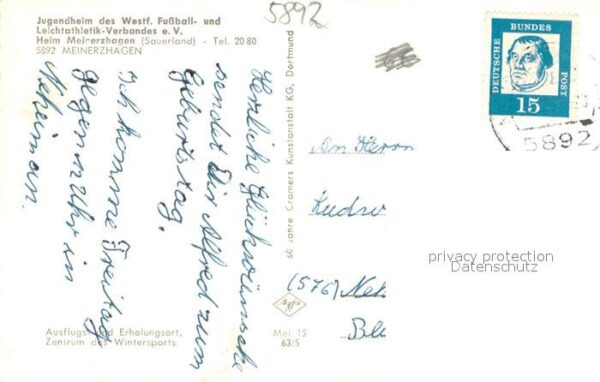 5892
Jugendheim des Westf. Fußball- und
Leichtathletik-Verbandes e. V.
Heim Meinerzhagen (Sauerland) - Tel. 20 80
5892 MEINERZHAGEN
Herzliche Glückwünsche
sendet Dir Alfred zum
Geburtstag.
Ich komme Freitag
gegen Uhr in
Neheim an.
60 Jahre Cramers Kunstanstalt KG, Dortmund
DEUTSCHE
BUNDES
POST
15
5892
An Herrn
Ludw
(576) Neh
privacy protection
Datenschutz
Ausflugs- und Erholungsort,
Zentrum des Wintersports
Mei 15
63/5